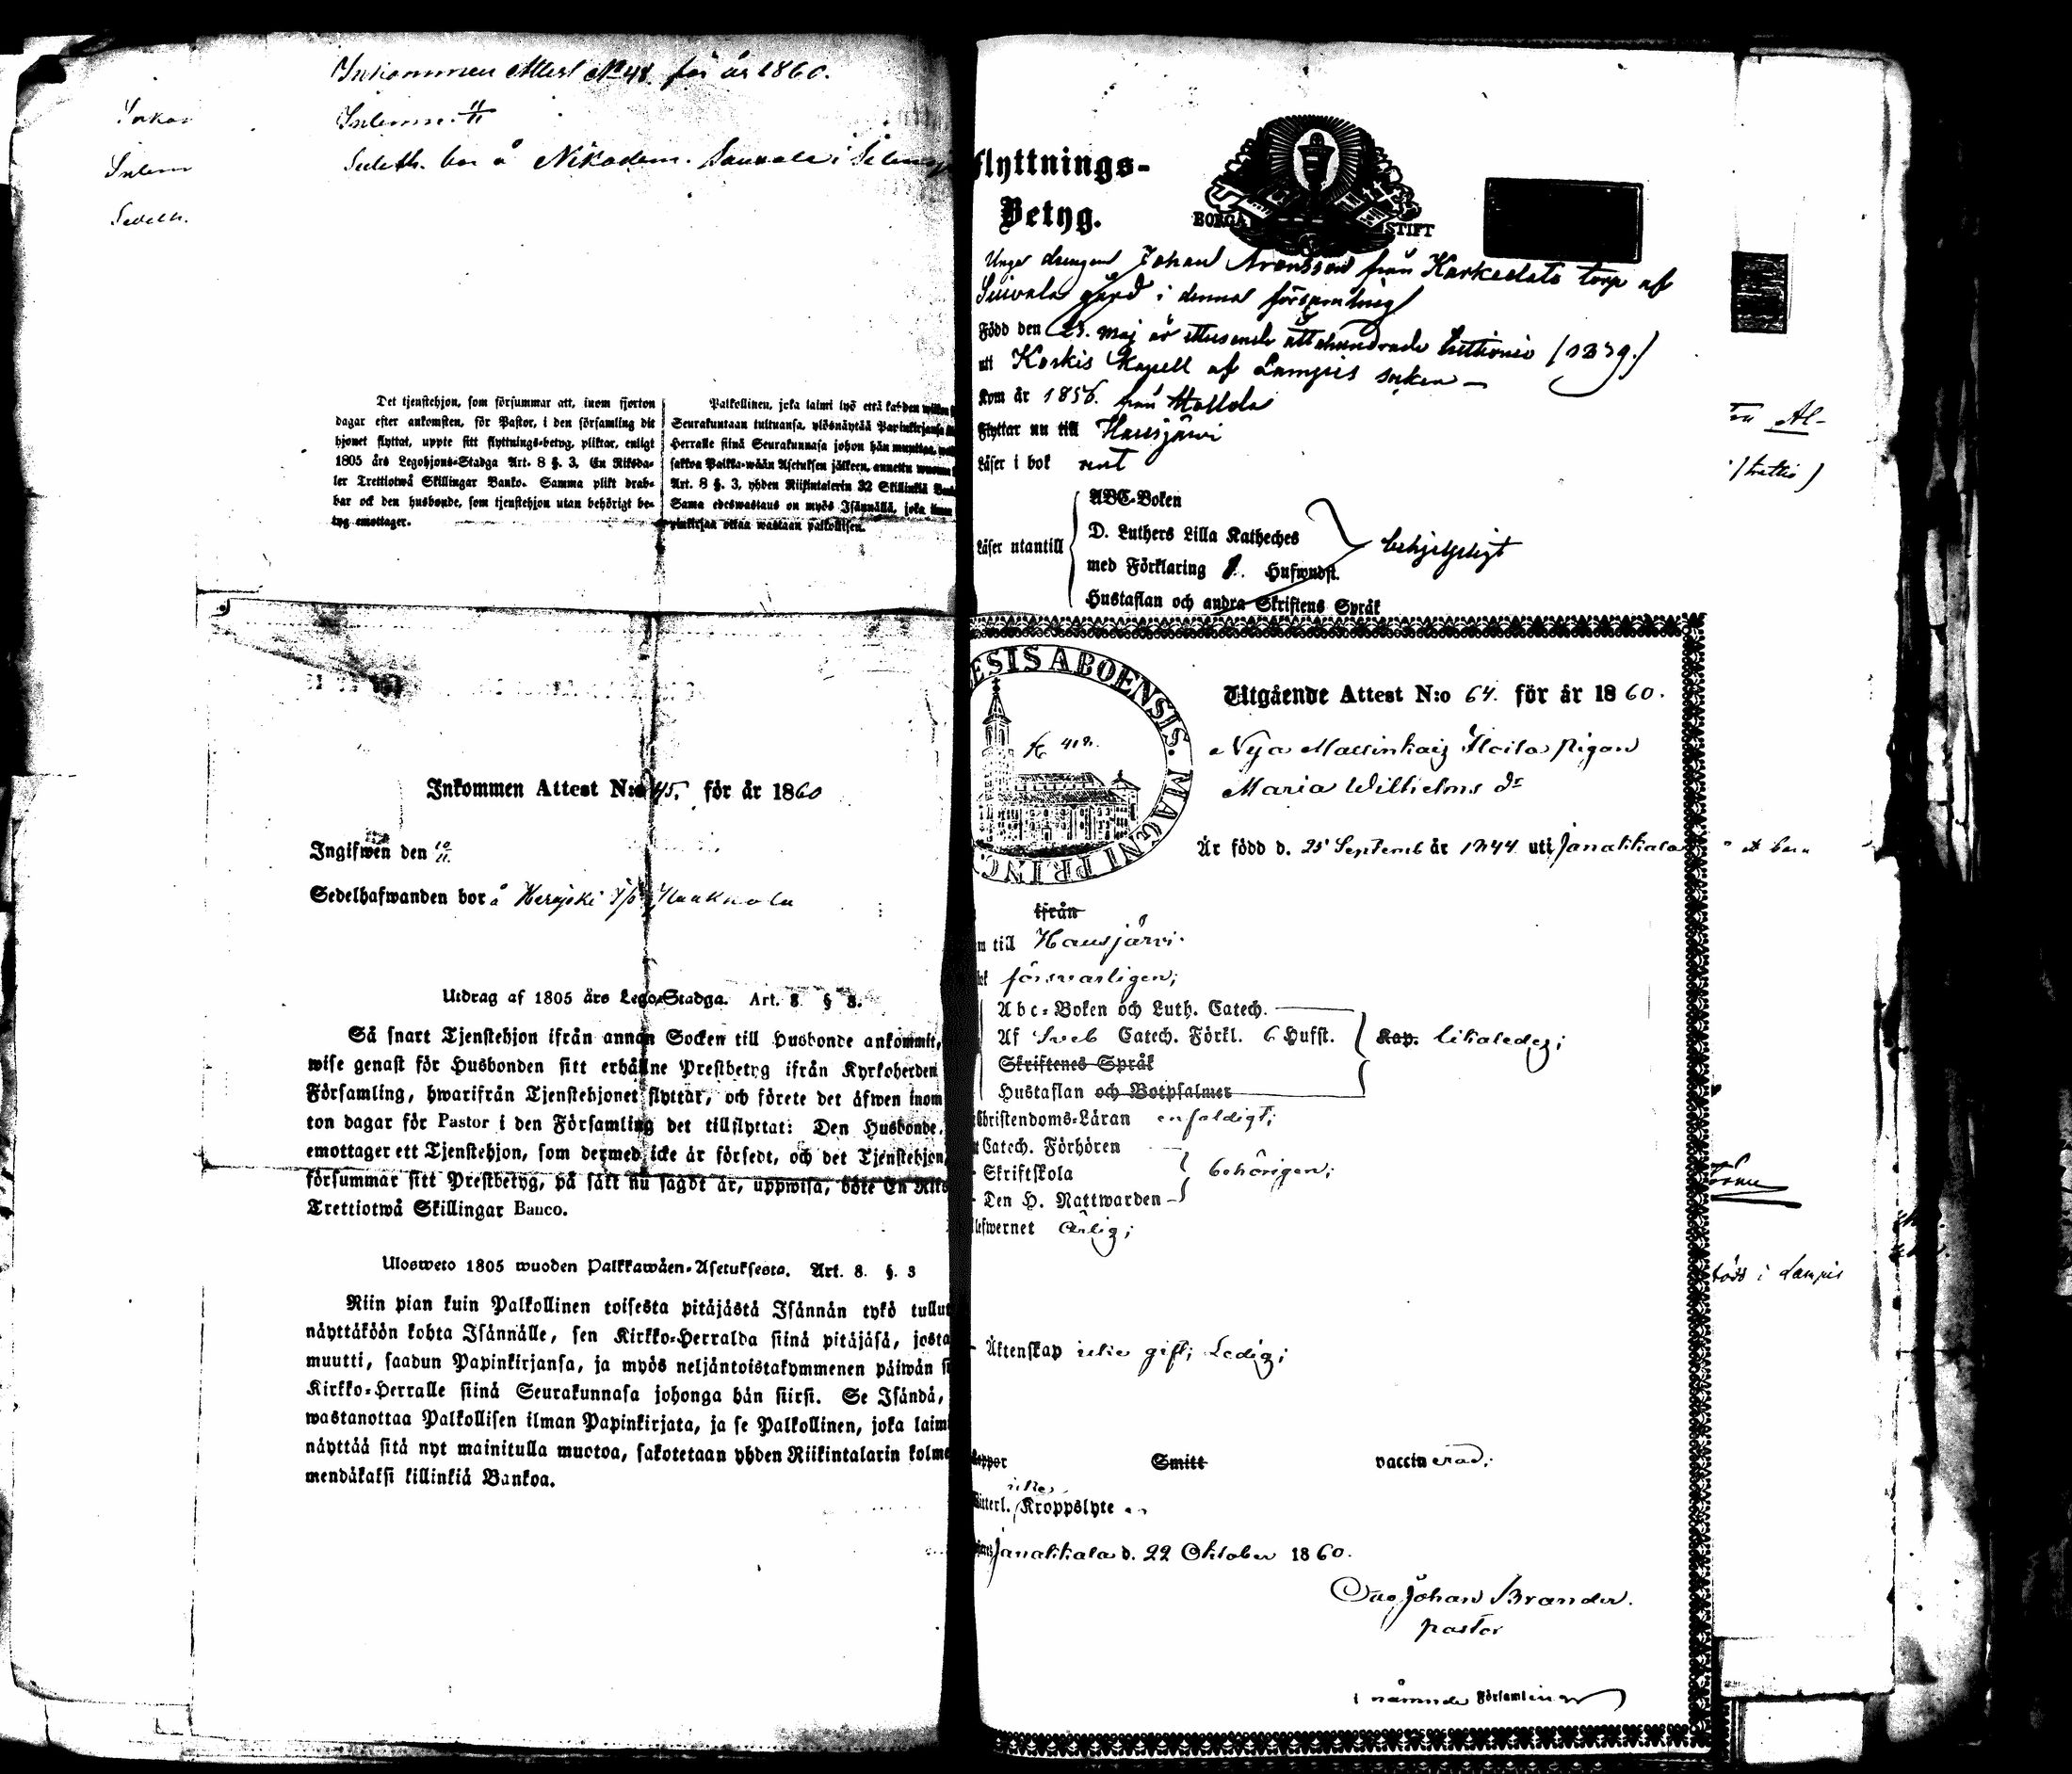 Inkommen Attest No 48. för år 1860.
Inlemn.
Sedelh. bor å Nikodem.
Inkom
Inlem
Sedelh.
Det tjenstehjon, som försummar att, inom fjorton
dagar efter ankomsten, för Pastor, i den församling dit
hjonet flyttat, uppte sitt flyttnings-betyg, pliktar, enligt
1805 års Legohjons-Stadga Art. 8 §. 3, En Riksda-
ler Trettiotwå Skillingar Banko. Samma plikt drab-
bar ock den husbonde, som tjenstehjon utan behörigt be-
tyg emottager.
Palkollinen, joka laimi lyö että kahden
Seurakuntaan tultuansa, ylösnäytää Papinkirjansa
Herralle siinä Seurakunnasa johon hän muuttaa,
sakkoa Palkka-wään Asetuksen jälkeen, annettu wuonna
Art. 8 §. 3, yhden Riikintalerin 32 Skillinkiä
Sama edeswastaus on myös Isännällä, joka ilman
pinkirjaa ottaa wastaan palkollisen.
Inkommen Attest N:o 45. för år 1860
Ingifwen den 10/11.
Sedelhafwanden bor å
Utdrag af 1805 års Lego-Stadga. Art. 8 § 3.
Så snart Tjenstehjon ifrån annan Socken till Husbonde ankommit,
wise genast för Husbonden sitt erhållne Prestbetyg ifrån Kyrkoherden
Församling, hwarifrån Tjenstehjonet flyttar, och förete det äfwen inom
ton dagar för Pastor i den Församling det tillflyttat: Den Husbonde,
emottager ett Tjenstehjon, som dermed icke är försedt, och det Tjenstehjon,
försummar sitt Prestbetyg, på sätt nu sagdt är, uppwisa, böte En Riks
Trettiotwå Skillingar Banco.
Ulosweto 1805 wuoden Palkkawäen-Asetuksesta. Art. 8. §. 3
Niin pian kuin Palkollinen toisesta pitäjästä Isännän tykö tullut
näyttäköön kohta Isännälle, sen Kirkko-Herralda siinä pitäjäsä, josta
muutti, saadun Papinkirjansa, ja myös neljäntoistakymmenen päiwän
Kirkko-Herralle siinä Seurakunnasa johonga hän siirsi. Se Isändä,
wastanottaa Palkollisen ilman Papinkirjata, ja se Palkollinen, joka laimi
näyttää sitä nyt mainitulla muotoa, sakotetaan yhden Riikintalarin kolme
mendäkaksi killinkiä Bankoa.
flyttnings-
Betyg.
BORGÅ STIFT
Unga drengen Johan Aronsson från Karkeslato torp af
gård i denna församling
Född den 23. maj år ettusende åttahundrade trettionio (1839.)
uti Koskis Kapell af Lampis socken
Kom år 1856. från Mallola
Flyttar nu till Hausjärvi
Läser i bok rent
Läser utantill
ABC-Boken
D. Luthers Lilla Katheches
med Förklaring 8. Hufwudst.
Hustaflan och andra Skriftens Språk
behjelpligt
ESIS ABOENSIS. MAGNI PRINC
Utgående Attest N:o 64. för år 1860.
Nya pigan
Maria Wilhelms dr
Är född d. 25 Septemb år 1844 uti Janakkala
ifrån
till Hausjärvi.
försvarligen;
Abc-Boken och Luth. Catech.
Af Sveb Catech. Förkl. 6 Hufst.
Skriftenes Språk
Hustaflan och Botpsalmer
Kap. likaledes;
Christendoms-Läran enfaldigt;
Catech. Förhören
Skriftskola
Den H. Nattwarden
behörigen;
lefwernet ärlig;
Äktenskap icke gift; Ledig;
Koppor Smitt vaccinerad;
icke
Witterl. Kroppslyte
Janakkala d. 22 Oktober 1860.
Johan Brander.
pastor
i nämnde Församling
(trettio)
född i Lampis